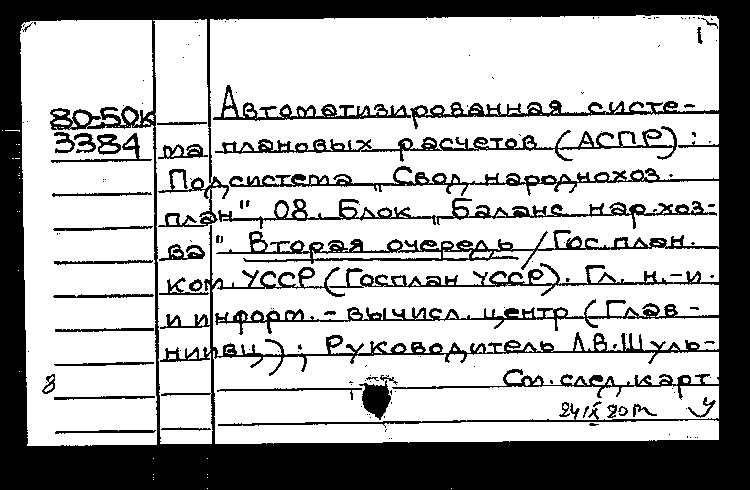 1
80-50к Автоматизированная систе-
3384 ма плановых расчетов (АСПР):
Подсистема „Свод. народнохоз.
план", 08. Блок „Баланс нар.хоз-
ва". Вторая очередь /Гос.план.
ком. УССР (Госплан УССР). Гл. н.-и.
и информ.-вычисл. центр (Глав-
НИИВЦ); Руководитель Л.В.Шуль-
8 См.след.карт.
24 IX 80